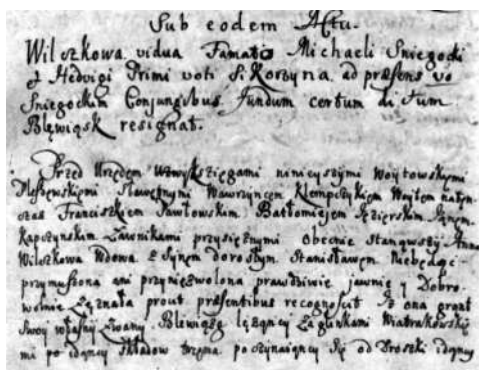 Sub eodem Actu.
Wilczkowa vidua Famato Michaeli Sniegocki
& Hedvigi Primi voti Sikorzyna ad præsens vo
Sniegockim Conjugibus Fundum certum dictum
Blewiąsk resignat.
Przed Urzędem xięgami ninieyszymi Woytowskiemi
Sławetnymi Wawrzyncem Klempczykiem Woytem natęn
czas Franciszkiem Pawłowskim Bartłomiejem
Kapczynskim Ławnikami przysięznymi obecnie stanąwszy Anna
Wilczkowa Wdowa z Synem dorosłym Stanisławem Niebędąc
przymuszona ani przyniewolona prawdziwie jawnie y Dobro
wolnie zęznała prout præsentibus recognoscit Iż ona grunt
swoy własny zwany Blewiązg lężący
mi po idący składow trzema poczynaiący Się od Drozki idący